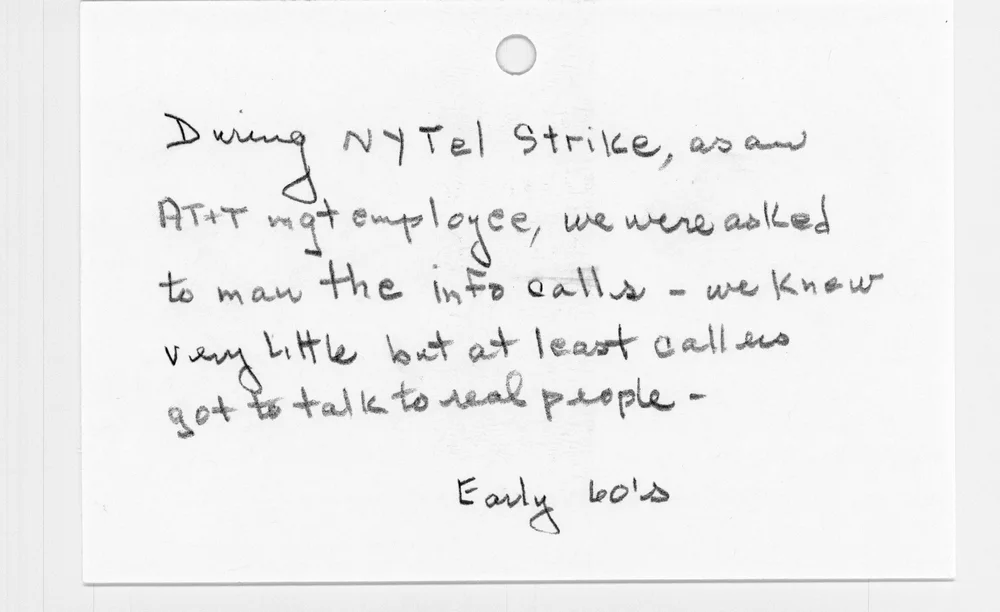 During NYTel Strike, as an
AT+T mgt employee, we were asked
to man the info calls - we knew
very little but at least callers
got to talk to real people -
Early 60's